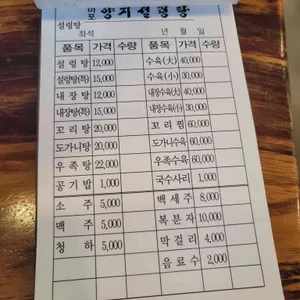 마포 양지설렁탕
설렁탕
좌석 년 월 일
품목 가격 수량 품목 가격 수량
설렁탕 12,000 수육(大) 40,000
설렁탕(특) 15,000 수육(小) 30,000
내장탕 12,000 내장수육(大) 40,000
내장탕(특) 15,000 내장수육(小) 30,000
꼬리탕 20,000 꼬리찜 60,000
도가니탕 20,000 도가니수육 60,000
우족탕 22,000 우족수육 60,000
공기밥 1,000 국수사리 1,000
소주 5,000 백세주 8,000
맥주 5,000 복분자 10,000
청하 5,000 막걸리 4,000
음료수 2,000